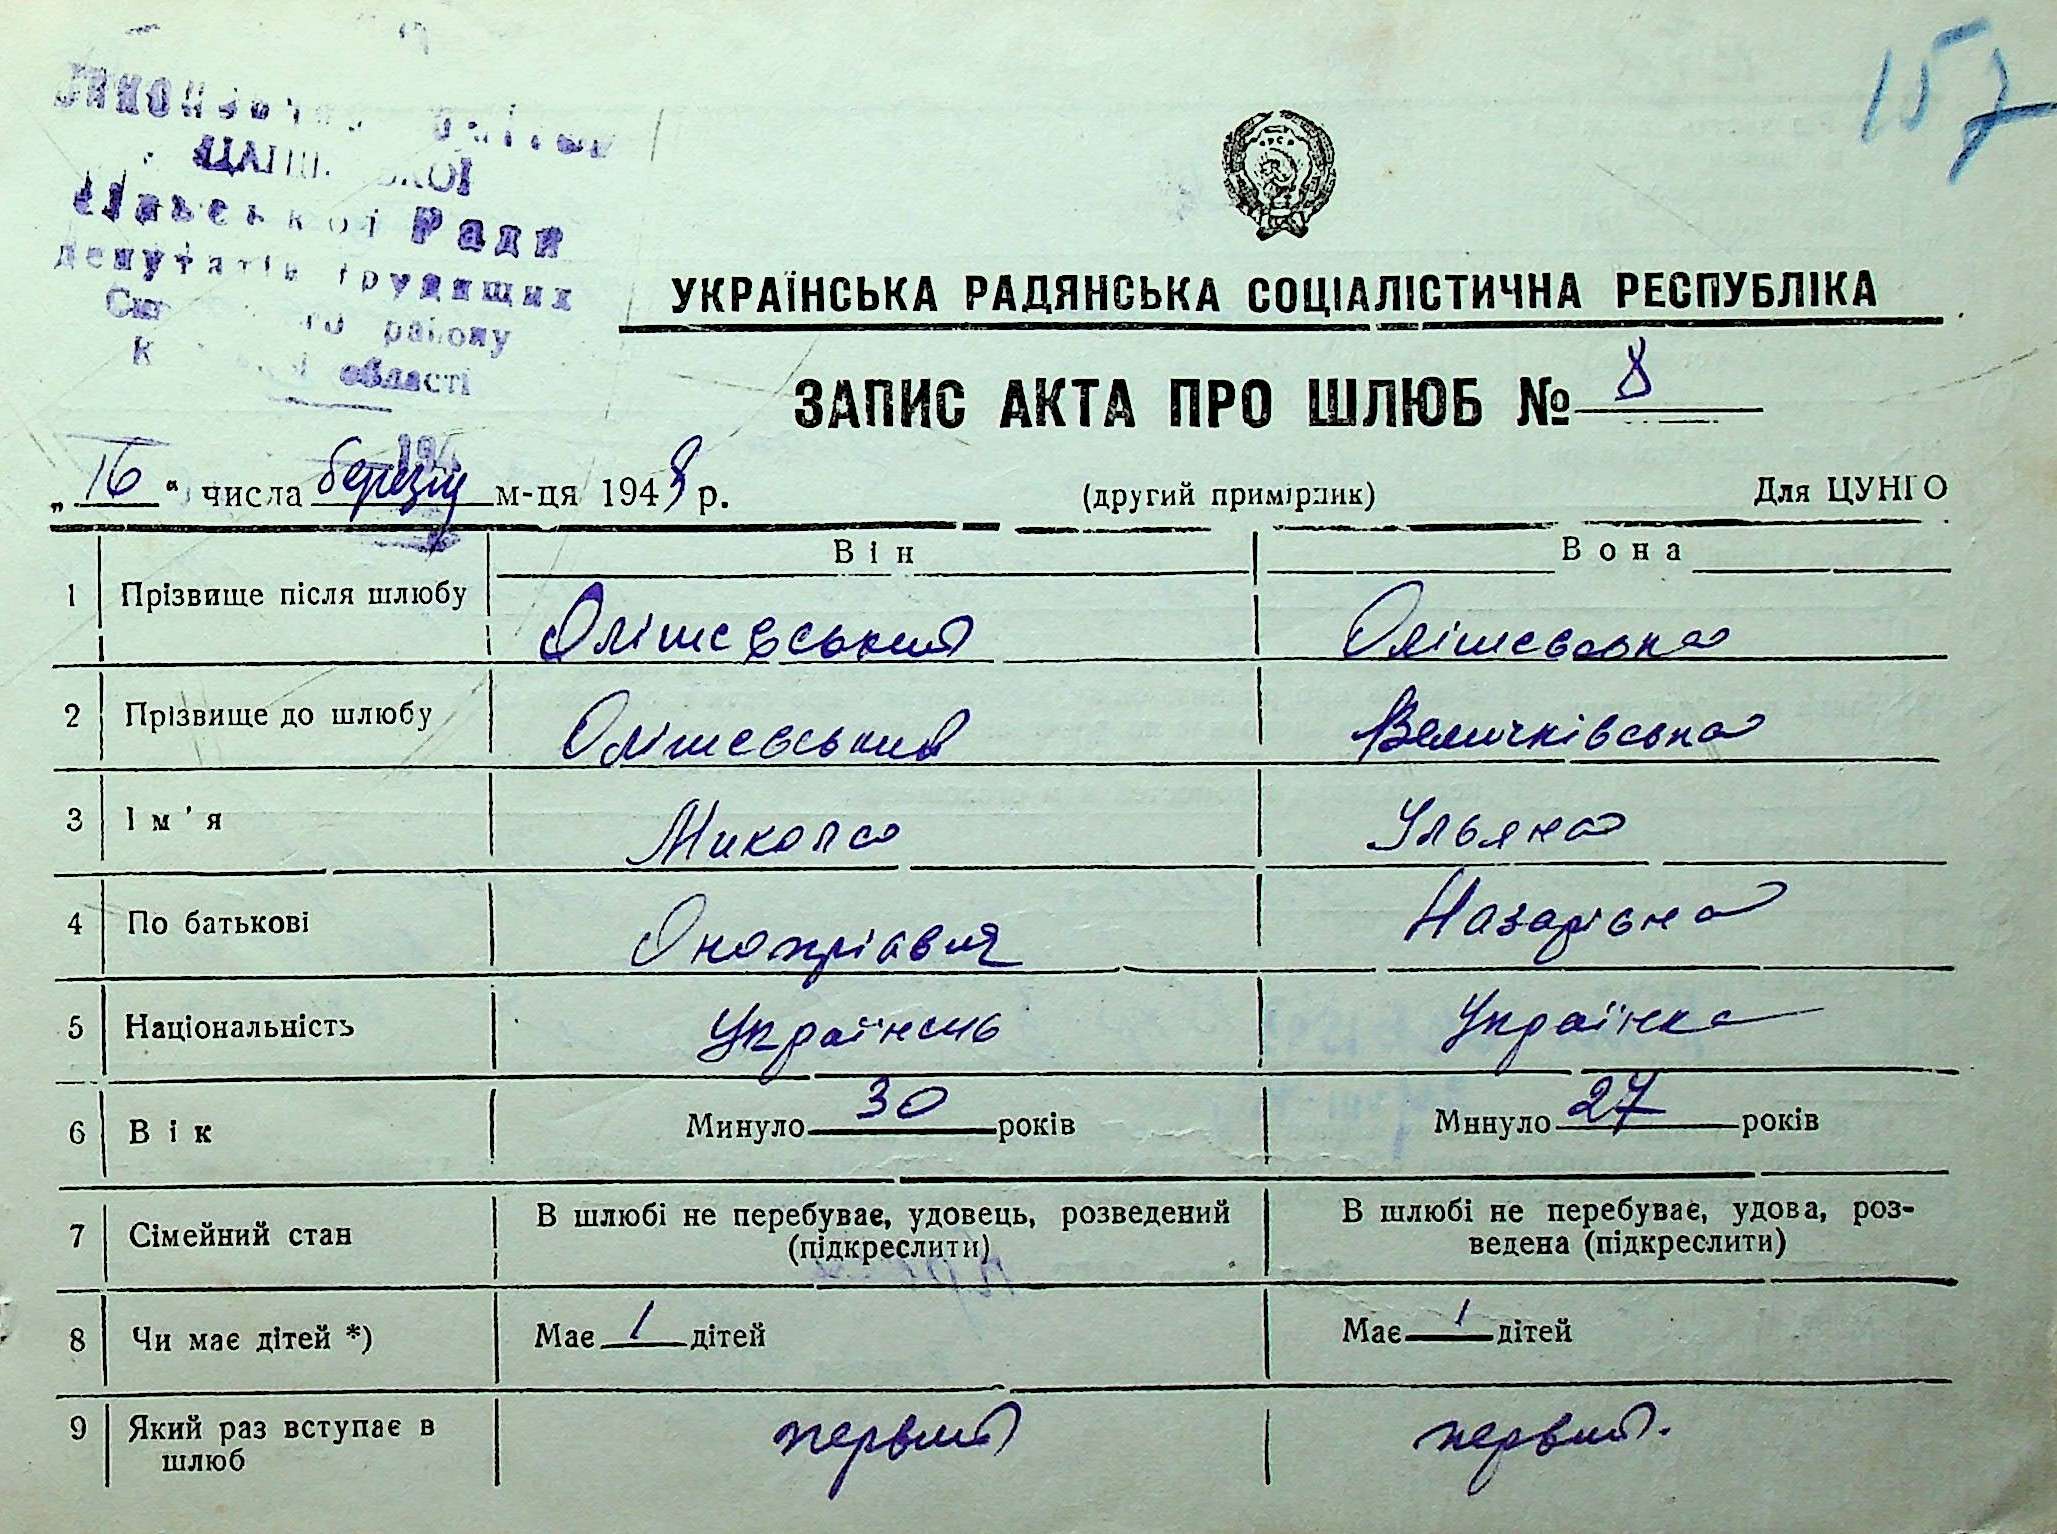 157
сільської Ради
депутатів трудящих
району
області
УКРАЇНСЬКА РАДЯНСЬКА СОЦІАЛІСТИЧНА РЕСПУБЛІКА
ЗАПИС АКТА ПРО ШЛЮБ № 8
194
„16“ числа березня м-ця 1948 р. (другий примірник) Для ЦУНГО
Він Вона
1 Прізвище після шлюбу Олішевський Олішевська
2 Прізвище до шлюбу Олішевський Величківська
3 Ім'я Микола Ульяна
4 По батькові Онопріавич Назарівна
5 Національність Українець Українка
6 Вік Минуло 30 років Минуло 27 років
7 Сімейний стан В шлюбі не перебуває, удовець, розведений В шлюбі не перебуває, удова, роз-
(підкреслити) ведена (підкреслити)
8 Чи має дітей *) Має 1 дітей Має 1 дітей
9 Який раз вступає в первий первий.
шлюб